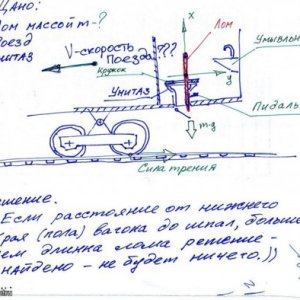 Дано:
Лом массой m-?
Поезд
Унитаз
V-скорость
Поезда ???
x
Лом
Умывальн
Кружок
y
Унитаз
Педаль
m·g
Сила трения
Если расстояние от нижнего
края (пола) вагона до шпал, больше
чем длинна лома решение -
найдено - не будет ничего.))